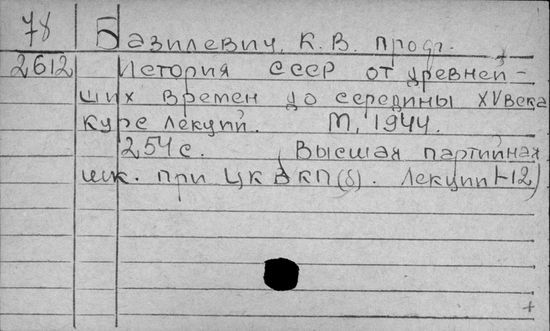 78 Базилевич, К. В. проф.
2612 История СССР от древней-
ших времен до середины XV века
Курс лекций. М, 1944.
254 с. Высшая партийная
шк. при ЦК ВКП(б). Лекции 1-12)
+